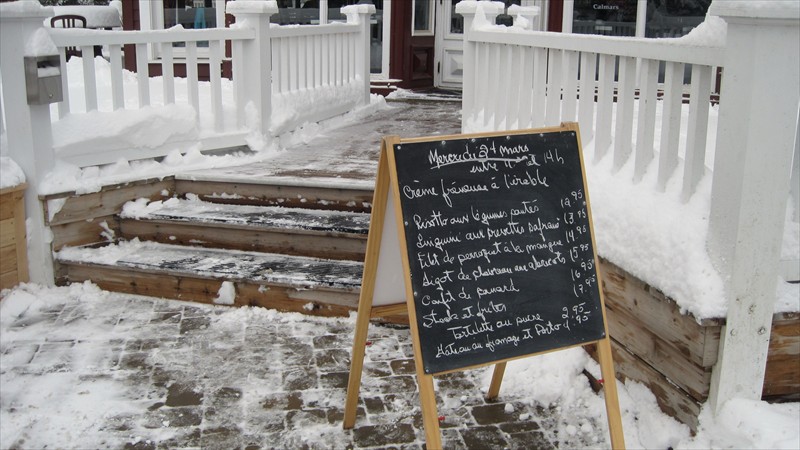 Calmars
Mercredi 24 mars
entre 11 et 14h
Crème fréneuse à l'érable
Risotto aux légumes 12.95
Linguini aux crevettes safran 13.95
Filet de perroquet à la mangue 14.95
Gigot de aux abricots 15.95
Confit de canard 16.95
Steak et frites 17.95
Tartelette au sucre 2.95
Gâteau au fromage et Porto 4.95